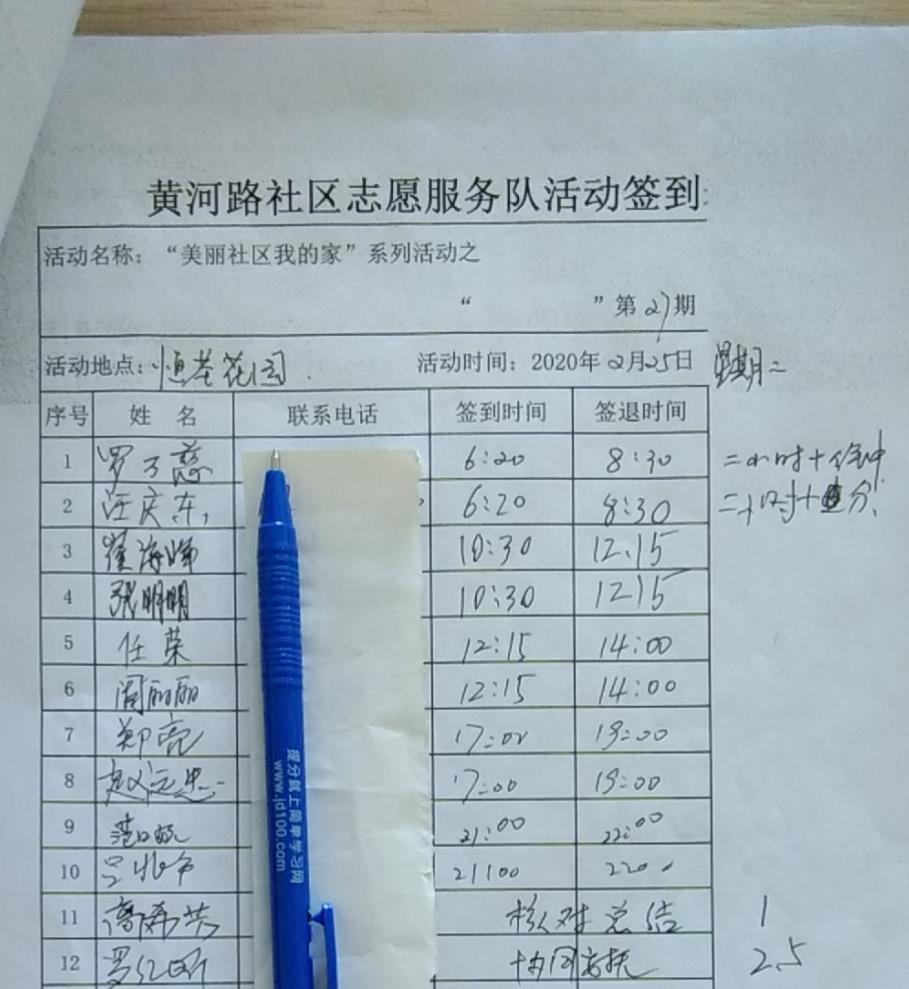 黄河路社区志愿服务队活动签到
活动名称：“美丽社区我的家”系列活动之
“ ”第27期
活动地点：花园 活动时间：2020年2月25日 星期二
序号 姓名 联系电话 签到时间 签退时间
1 罗子慈 6:20 8:30 二小时十分钟
2 汪庆东 6:20 8:30 二小时十分
3 崔海峰 10:30 12.15
4 张明明 10:30 12 15
5 任荣 12:15 14:00
6 丽丽 12:15 14:00
7 郑亮 17:00 19:00
8 赵 17:00 19:00
9 21:00 22:00
10 21:00
11 核对总结 1
12 协同 2.5
提分就上简单学习网
www.jd100.com